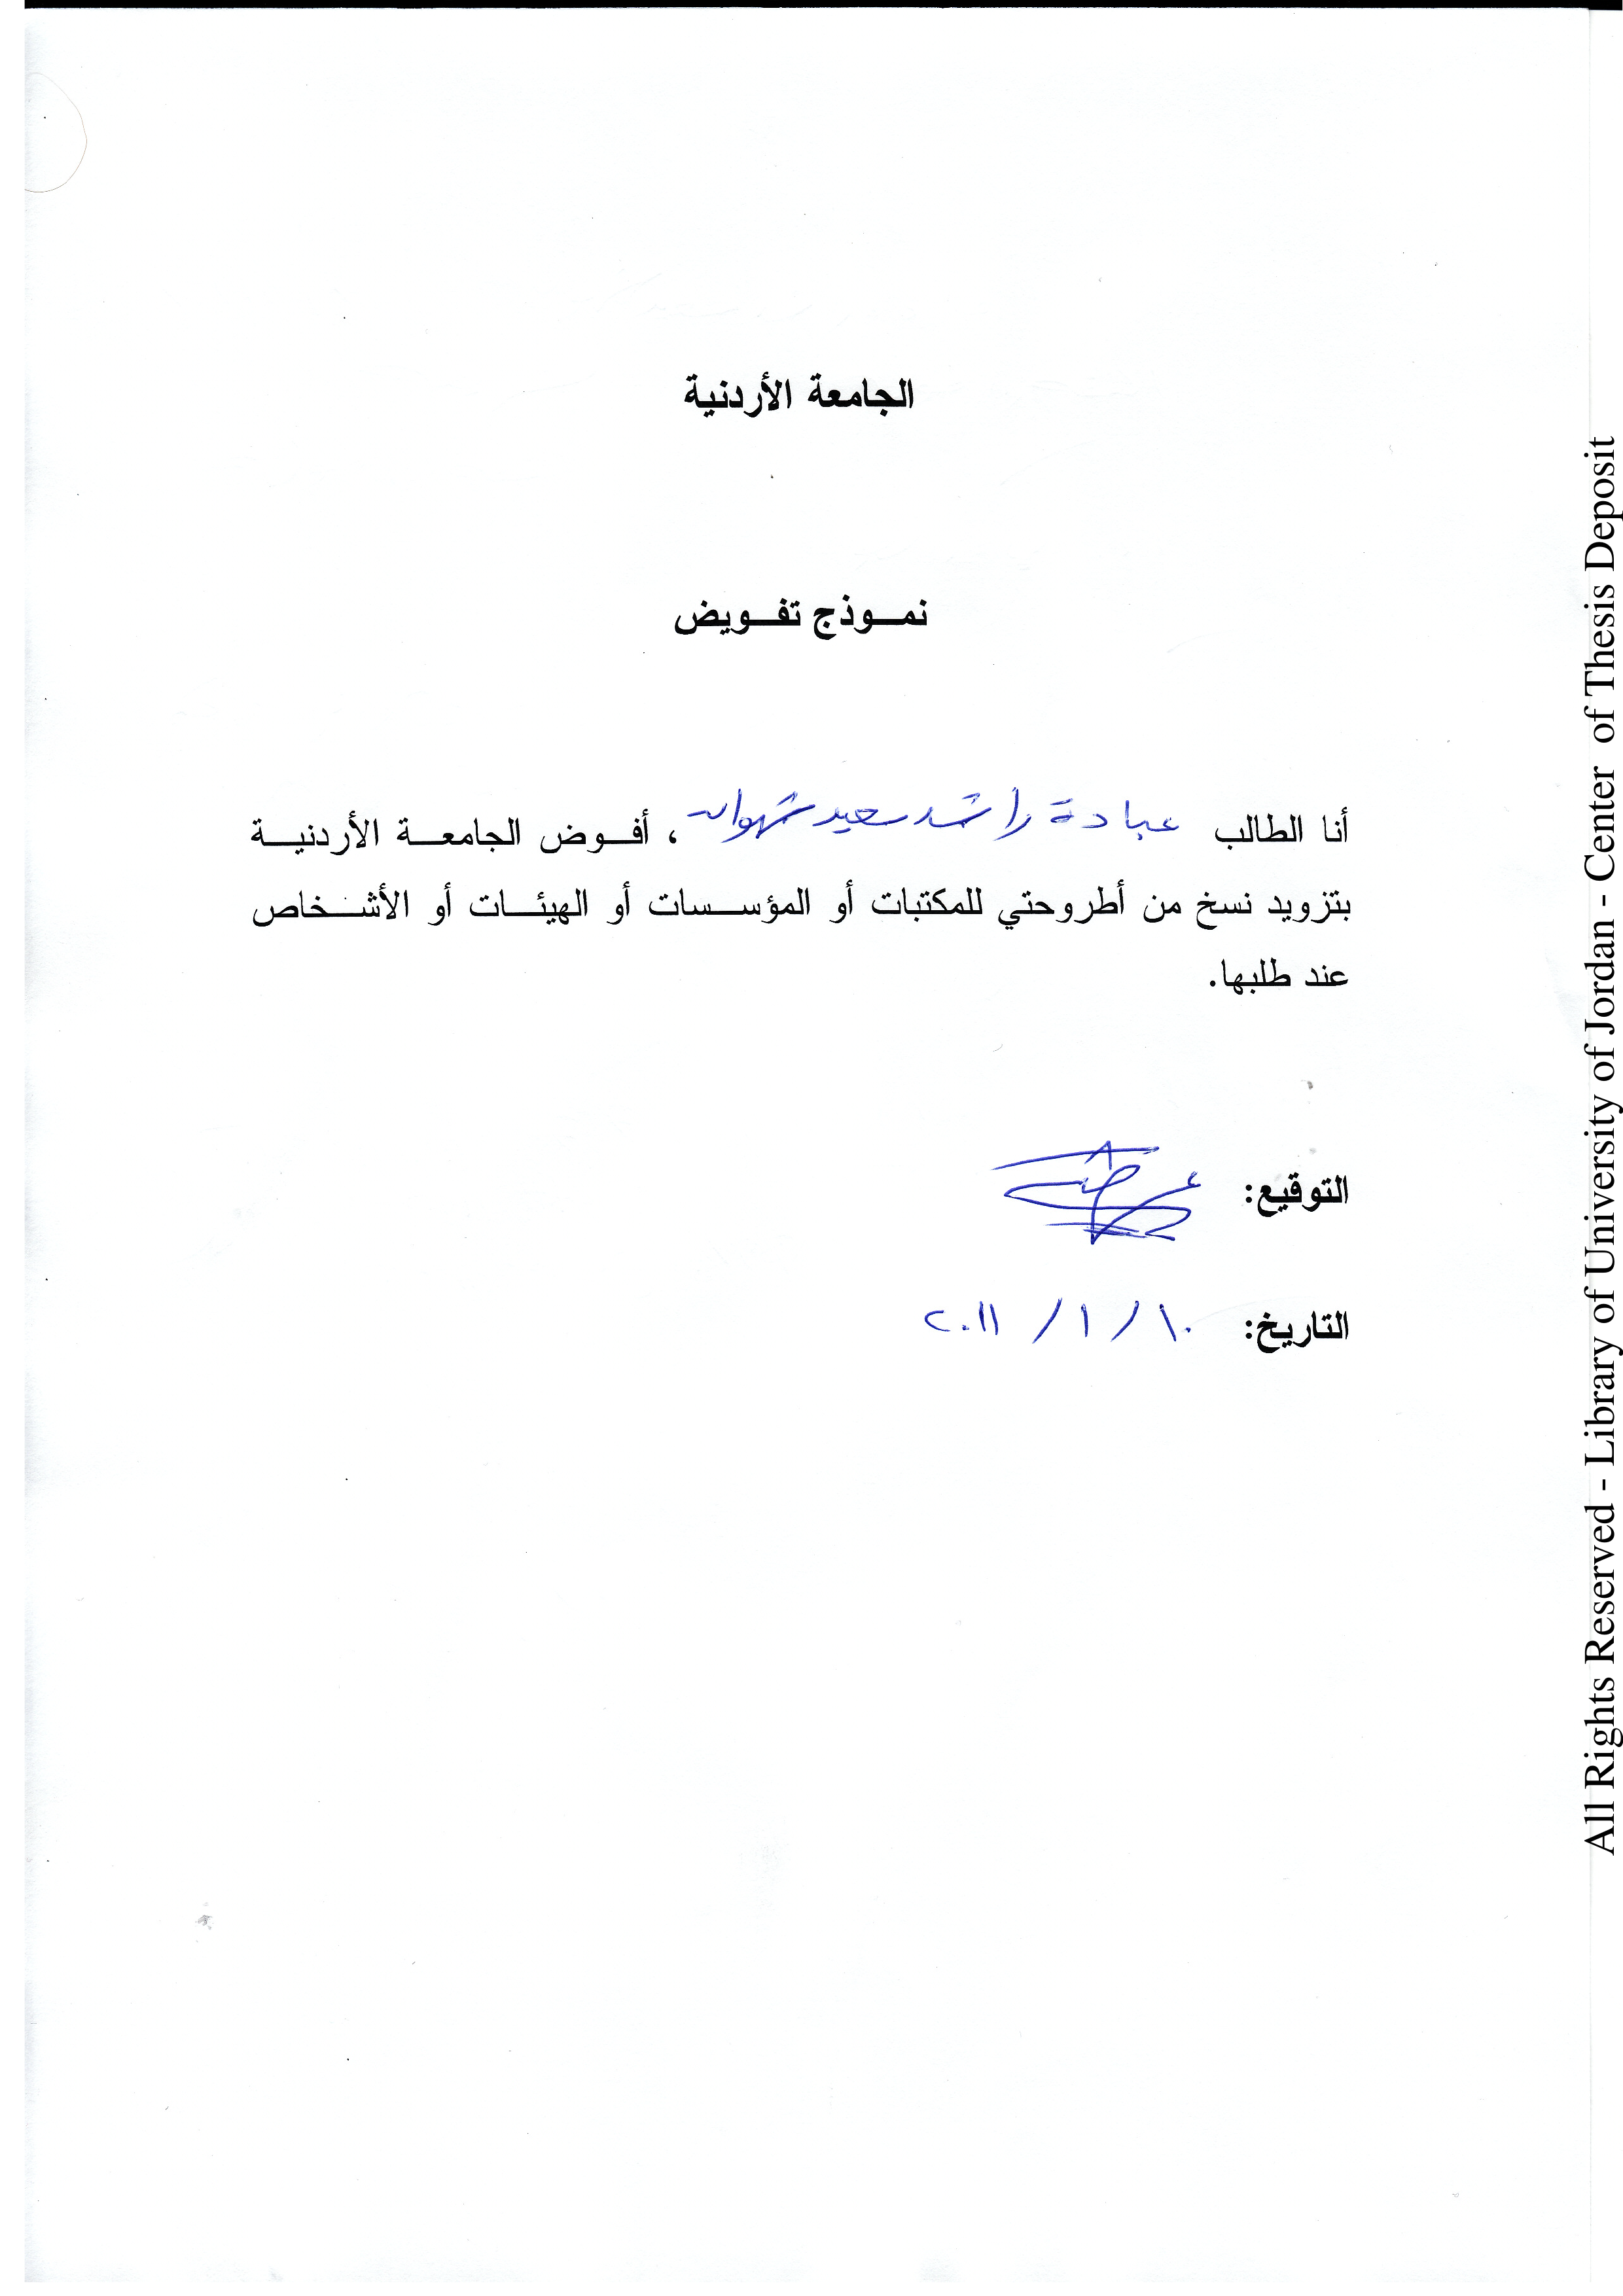 الجامعة الأردنية
نمـوذج تفـويض
أنا الطالب عبادة راشد سعيد شهوان ، أفـوض الجامعـة الأردنيـة
بتزويد نسخ من أطروحتي للمكتبات أو المؤسـسات أو الهيئـات أو الأشـخاص
عند طلبها.
التوقيع:
التاريخ: ١٠ / ١ / ٢٠١١
All Rights Reserved - Library of University of Jordan - Center of Thesis Deposit